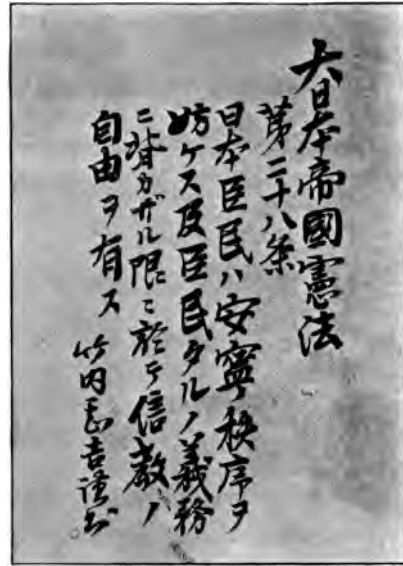 大日本帝國憲法
第二十八条
日本臣民ハ安寧秩序ヲ
妨ケス及臣民タルノ義務
ニ背カザル限ニ於テ信教ノ
自由ヲ有ス
竹内 吉謹書